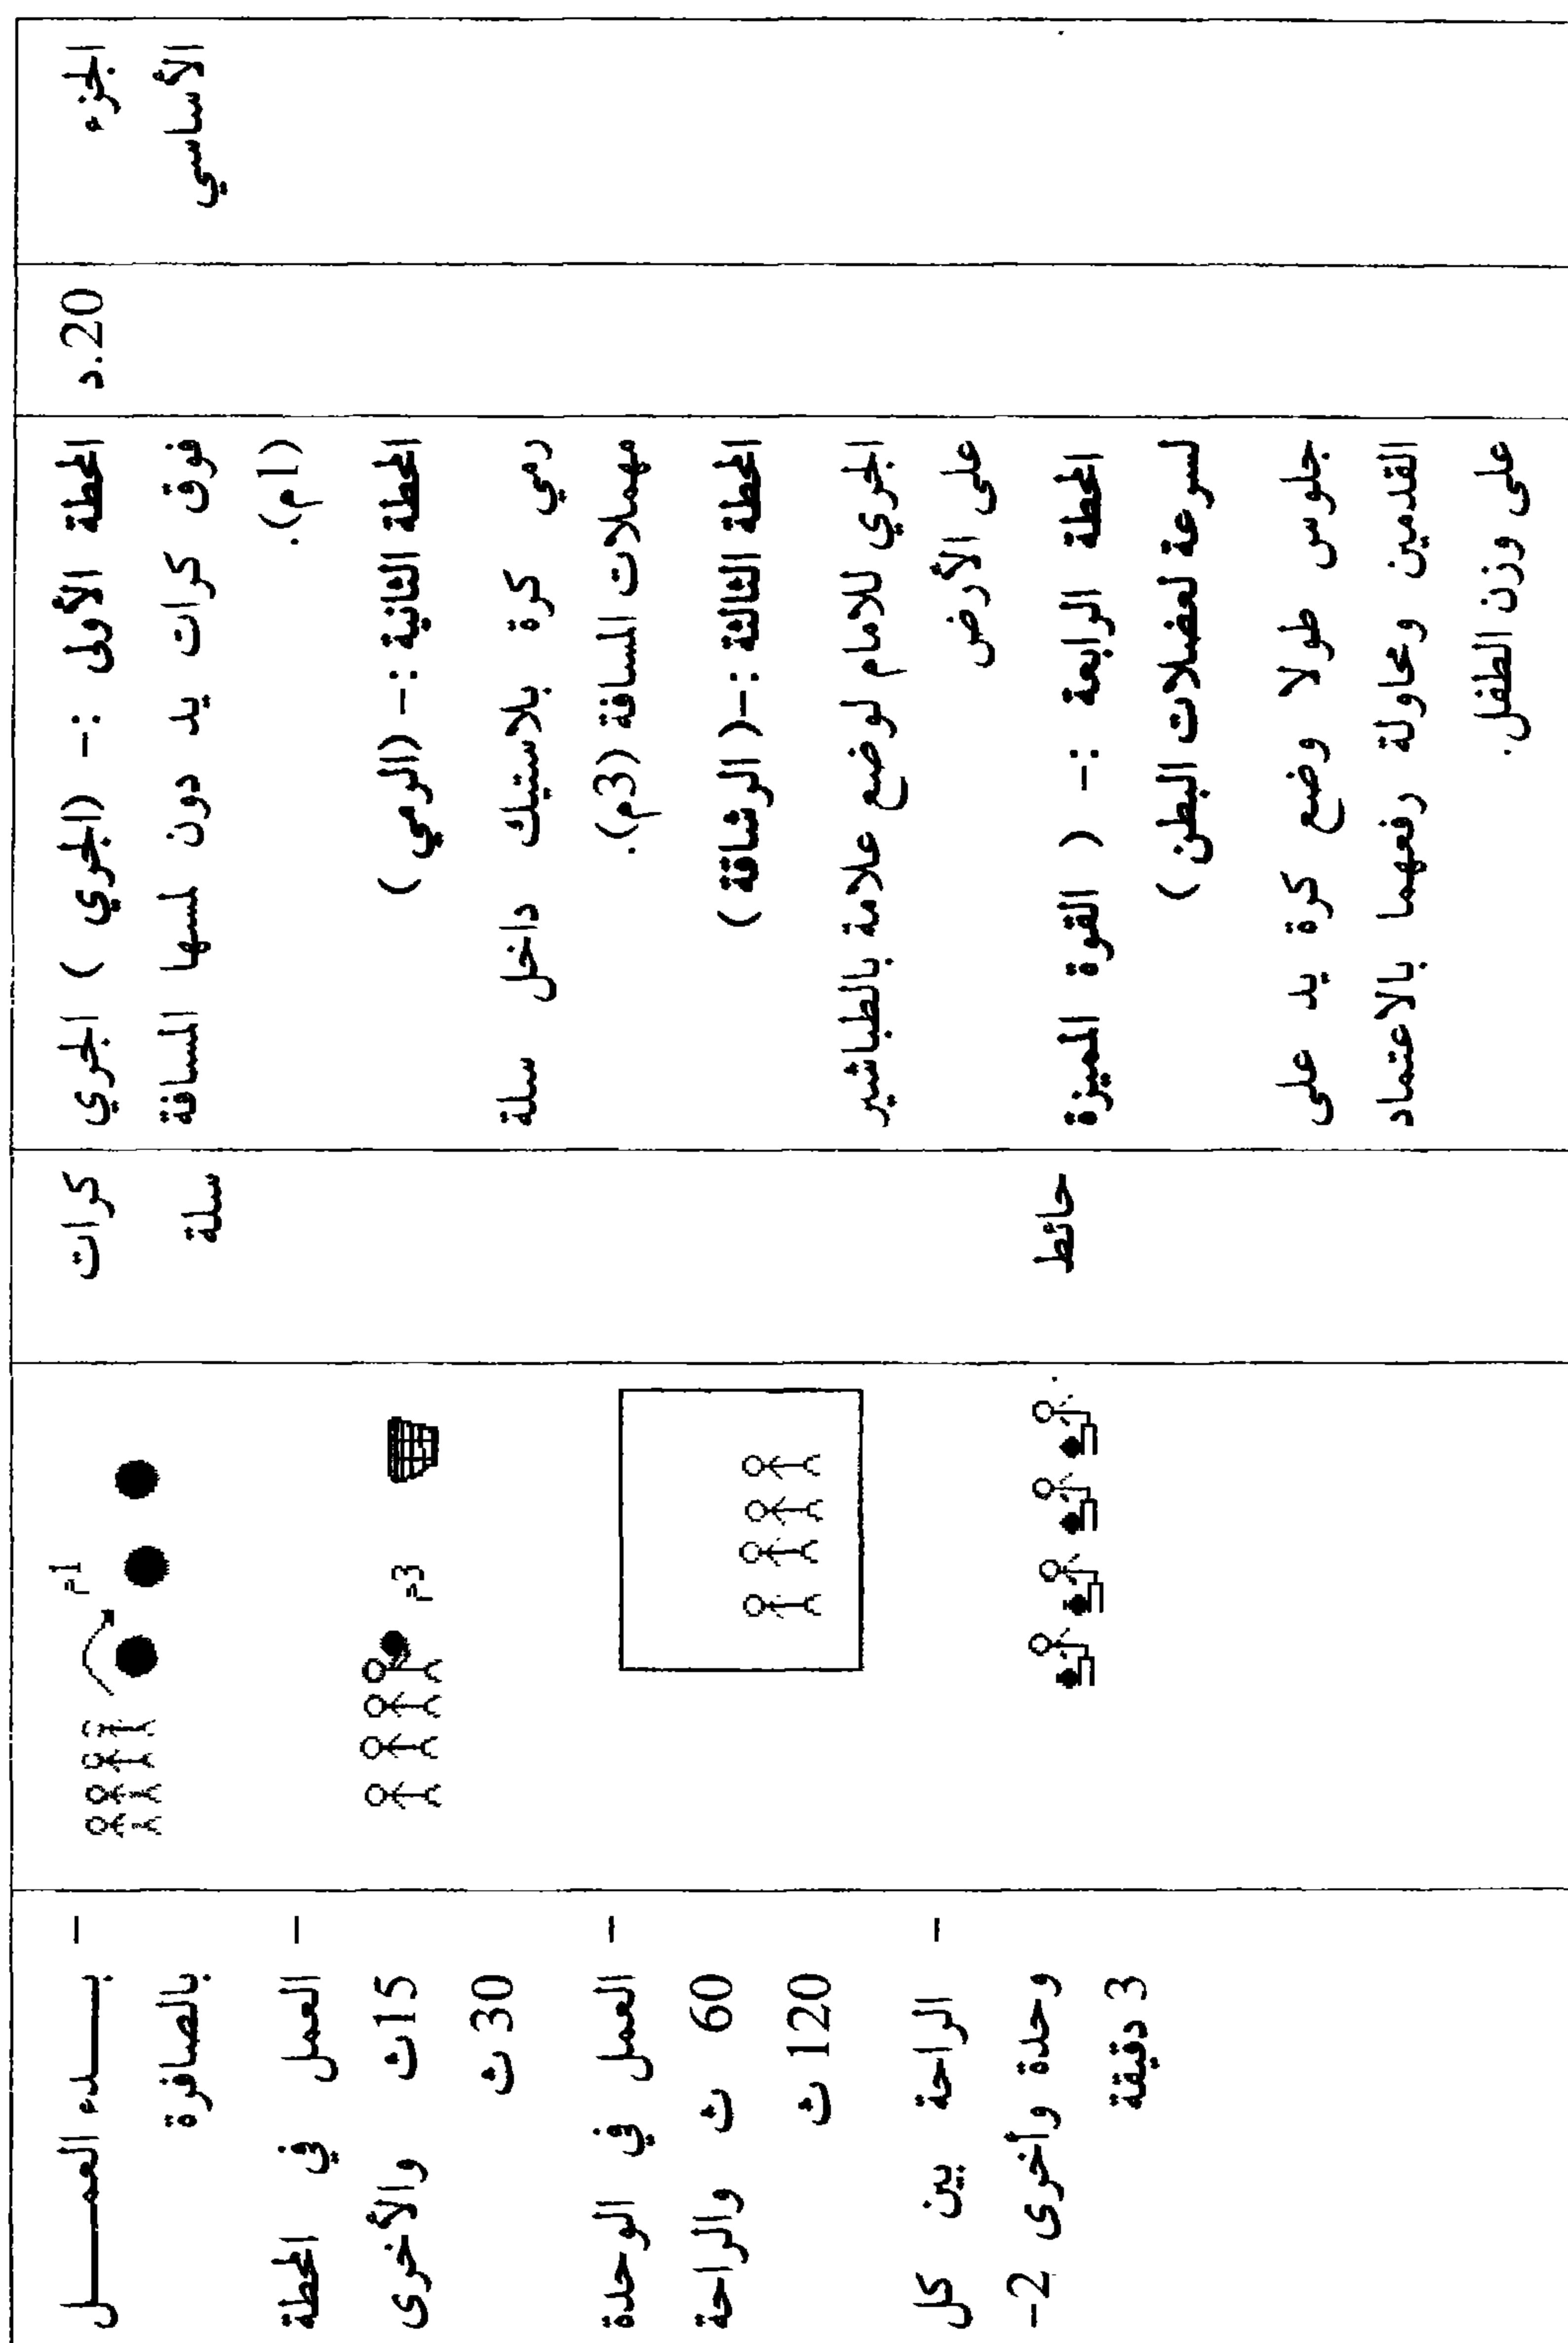 الجزء
الأساسي
20.د
المحطة الأولى :- (الجري ) الجري
فوق كرات يد دون لمسها المسافة
(1م).
المحطة الثانية :- (الرمي )
رمي كرة بلاستيك داخل سلة
مهملات المسافة (3م).
المحطة الثالثة :-( الرشاقة )
الجري للامام لوضع علامة بالطباشير
على الأرض
المحطة الرابعة :- ( القوة المميزة
لسرعة لعضلات البطن )
جلوس طولا وضع كرة يد على
القدمين ومحاولة رفعهما بالاعتماد
على وزن الطفل.
كرات
سلة
حائط
1م
3م
- بـــدء العمـــل
بالصافرة
- العمل في المحطة
15ث والأخرى
30 ث
- العمل في الوحدة
60 ث والراحة
120 ث
- الراحة بين كل
وحدة وأخرى 2-
3 دقيقة